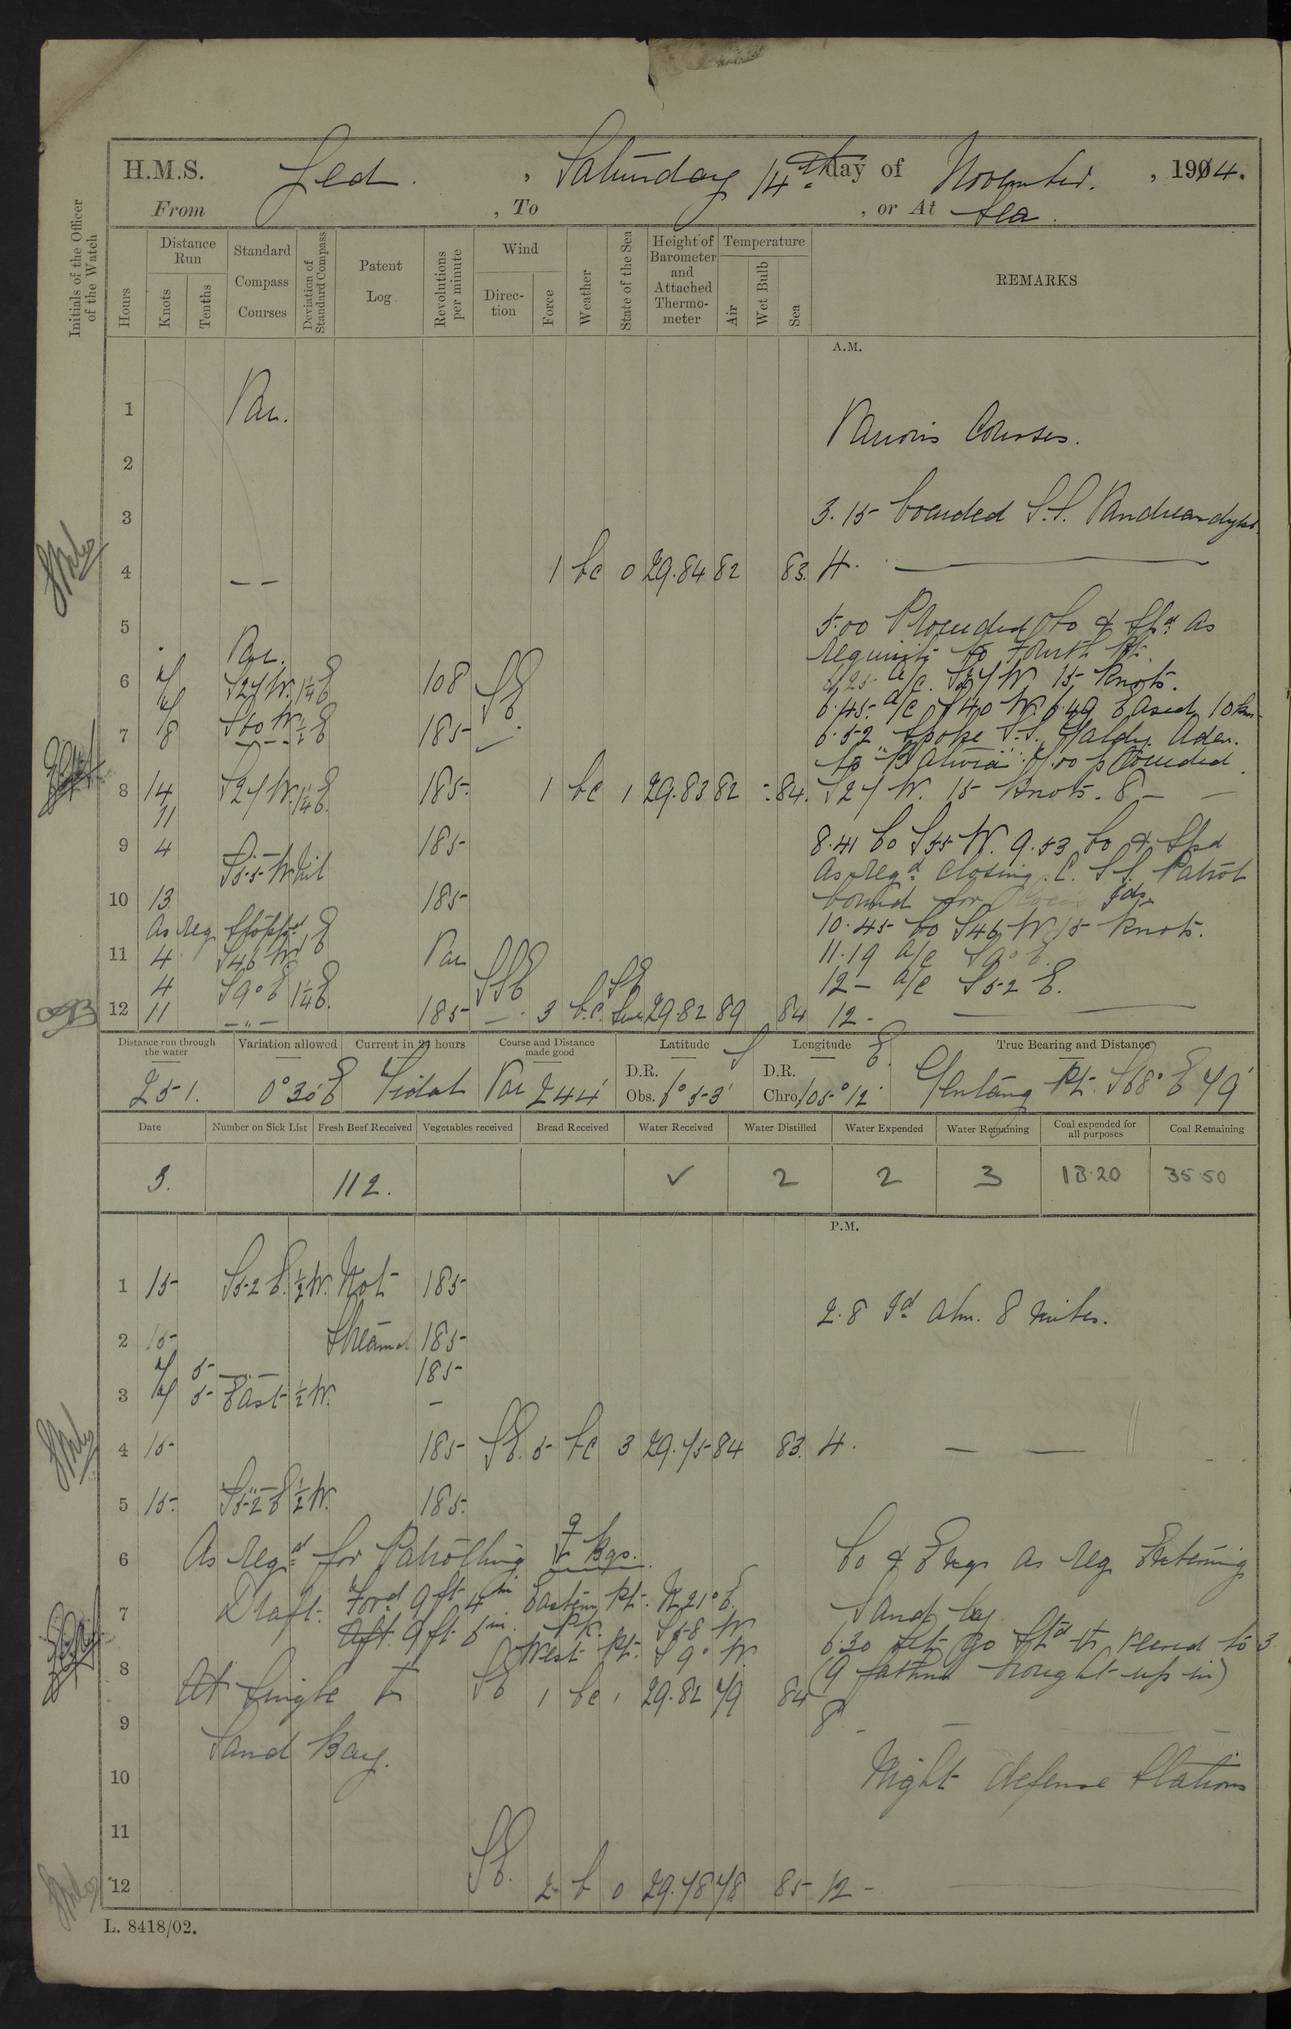 H.M.S. Jed. , Saturday 14th day of November. , 1914.
From , To , or At Sea.
Initials of the Officer of the Watch
Hours
Distance Run
Knots
Tenths
Standard Compass Courses
Deviation of Standard Compass
Patent Log
Revolutions per minute
Wind
Direction
Force
Weather
State of the Sea
Height of Barometer and Attached Thermometer
Temperature
Air
Wet Bulb
Sea
REMARKS
A.M.
1 Var.
Various Courses.
2
3 3.15 boarded S.S.
4 — — 1 bc 0 29.84 82 83. 4.
5 5.00 Proceeded Co & Spd as
Var. requisite to Fourth Pt.
6 7 S27W. 1¼E 108 a/c. S27W 15 knots.
S60W ½E SE 6.45. a/c S40W. 6.49 Eased 10 kn.
7 8 185 6.52 Spoke S.S. Aden.
to "Batavia" 7.00 proceeded
8 14 S27W. 1¼E. 185. 1 bc 1 29.83 82 84. S27W. 15 knots. 8 —
11
9 4 185 8.41 Co S55W. 9.53 Co & Spd
S55W Nil as reqd closing. S.S. Patrol
10 13 185 bound for
As req Stopped 1E 10.45 Co S46W 15 knots.
11 4 S46W. Var 11.19 a/c S9°E.
4 S9°E 1¼E. SSE SE 12 — a/c S52E.
12 11 — " — 185 3 b.c. 29.82 89 84 12 -
Distance run through the water
Variation allowed
Current in 24 hours
Course and Distance made good
Latitude S
Longitude E.
True Bearing and Distance
D.R.
D.R.
251. 0°30'E Tidal Var 244' Obs. 6°53' Chro. 105°12' Pt. S68°E 79'
Date
Number on Sick List
Fresh Beef Received
Vegetables received
Bread Received
Water Received
Water Distilled
Water Expended
Water Remaining
Coal expended for all purposes
Coal Remaining
3. 112. ✓ 2 2 3 18.20 35.50
P.M.
1 15 S52E. ½W. Not 185
2.8 Id. Alm. 8 miles.
2 15 Streamed 185
7 5 — " — 185
3 7 5 East ½W. -
4 15 185 SE. 5 bc 3 29.75 84 83. 4. — —
5 15. S52E ½W. 185.
6 As reqd for Patrolling Co & Engs as req Entering
7 Draft. Ford 9ft. 4in Eastern Pt. N21°E. Sand Bay
Aft. 9ft 6in. Pk. S58W
West Pt. S9°W. 6.30 Let go Stbd veered to 3
8 At single SE 1 bc 1 29.82 79 84 (9 fathoms brought up in)
8 -
9
Sand Bay.
10 Night defense Stations
11
12 SE. 2 b 0 29.78 78 85 12 -
L. 8418/02.